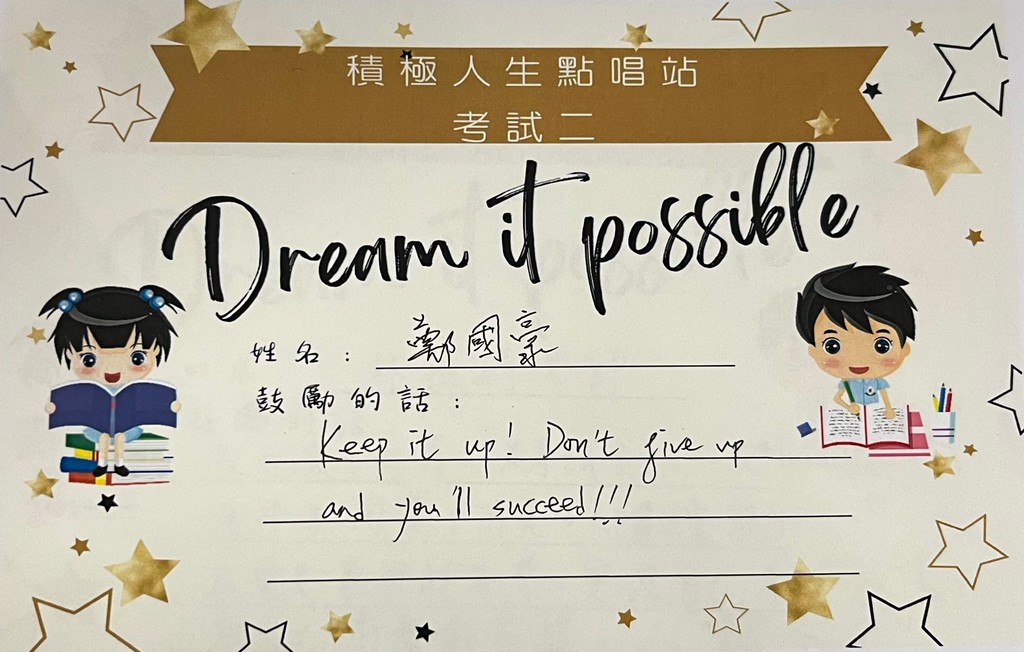 積極人生點唱站
考試二
Dream it possible
姓名：鄭國豪
鼓勵的話：
Keep it up! Don't give up
and you'll succeed!!!